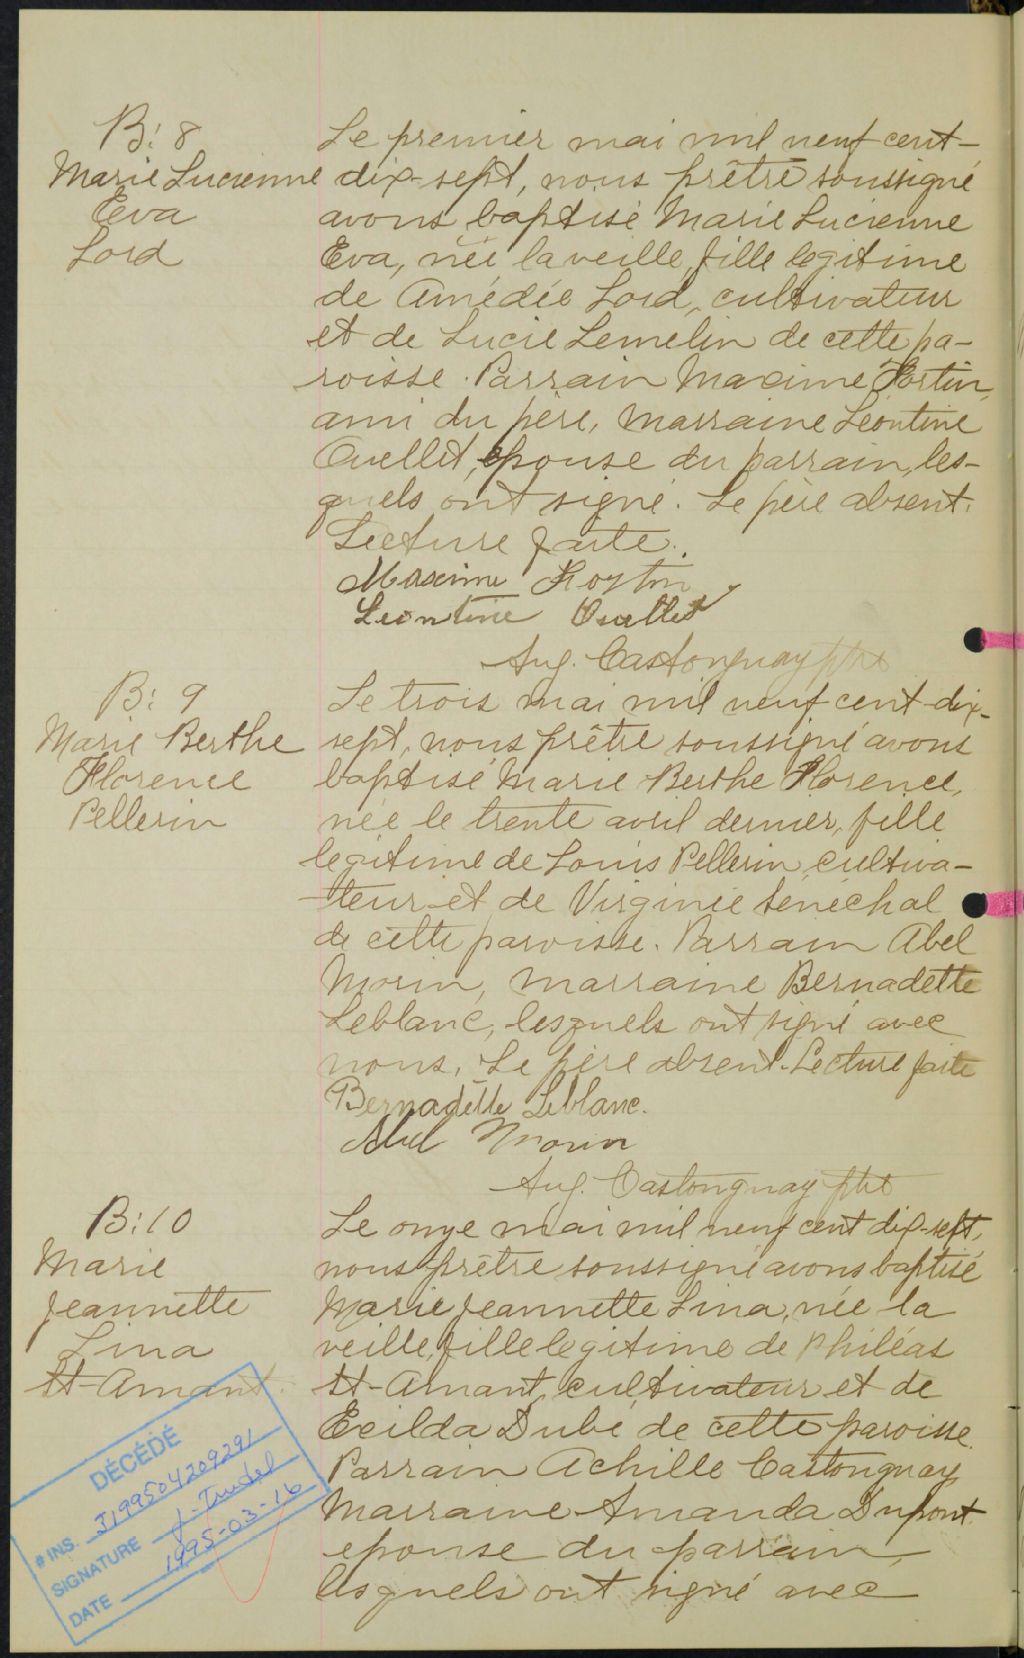 B: 8
Marie Lucienne
Eva
Lord
Le premier mai mil neuf cent-
dix-sept, nous prêtre soussigné
avons baptisé Marie Lucienne
Eva, née la veille fille legitime
de Amédée Lord, cultivateur
et de Lucie Lemelin de cette pa-
roisse. Parrain Maxime Fortin,
ami du père, marraine Léontine
Ouellet, épouse du parrain, les-
quels ont signé. Le père absent.
Lecture faite.
Maxime Fortin
Leontine Ouellet
Aug. Castonguay ptre
B: 9
Marie Berthe
Florence
Pellerin
Le trois mai mil neuf cent dix-
sept, nous prêtre soussigné avons
baptisé Marie Berthe Florence,
née le trente avril dernier, fille
legitime de Louis Pellerin cultiva-
teur et de Virginie Sénéchal
de cette paroisse. Parrain Abel
Morin, marraine Bernadette
Leblanc, lesquels ont signé avec
nous. Le père absent. Lecture faite
Bernadette Leblanc.
Abel Morin
Aug. Castonguay ptre
B: 10
Marie
Jeannette
Lina
St-Amant.
Le onze mai mil neuf cent dix-sept,
nous prêtre soussigné avons baptisé
Marie Jeannette Lina, née la
veille, fille legitime de Philéas
St-Amant, cultivateur et de
Exilda Dubé, de cette paroisse.
Parrain Achille Castonguay
Marraine Amanda Dupont
epouse du parrain,
lesquels ont signé avec
DÉCÉDÉ
# INS. J199504209291
SIGNATURE J. Trudel
DATE 1995-03-16